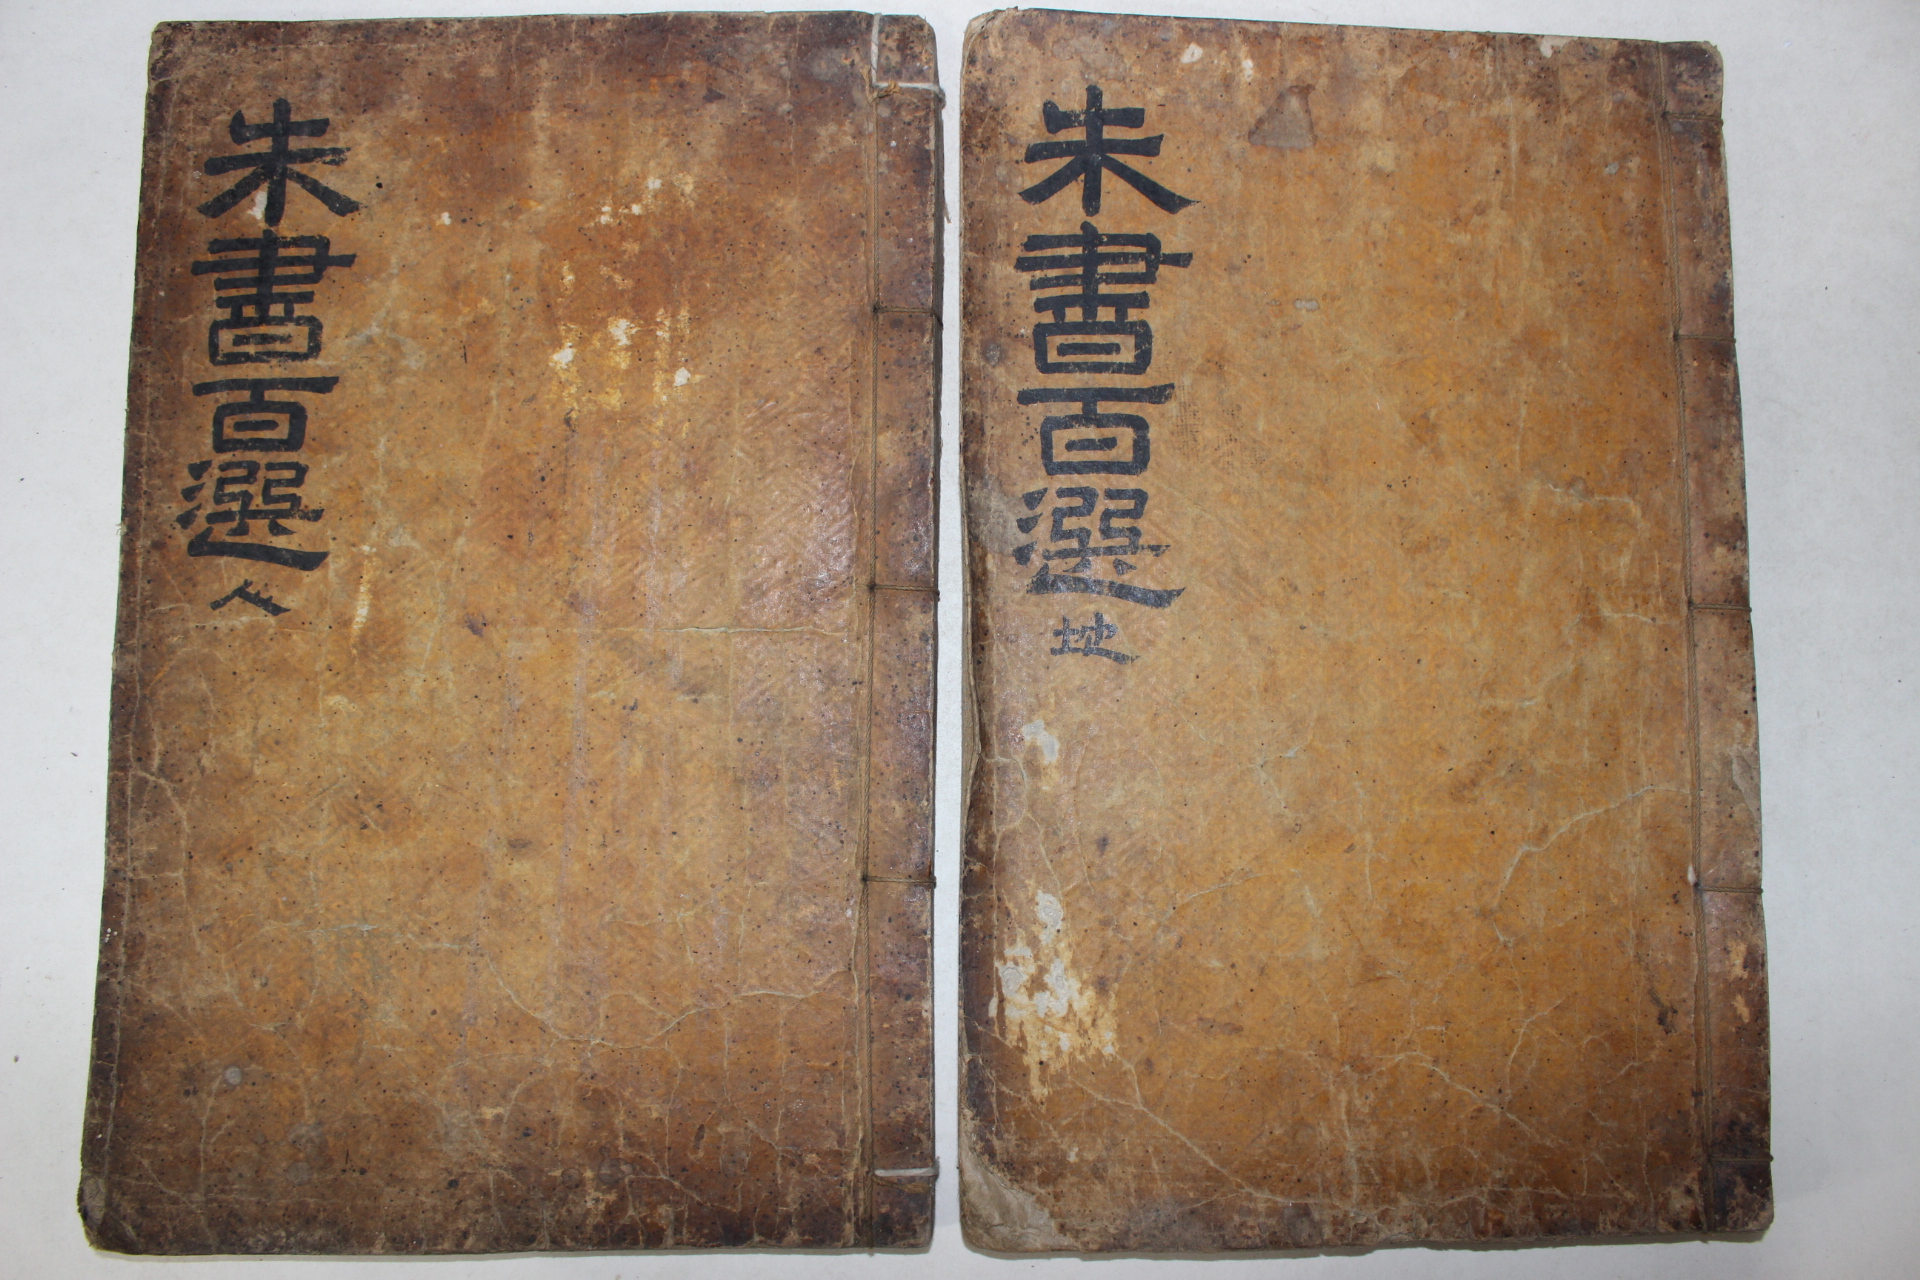 朱書百選 人
朱書百選 地